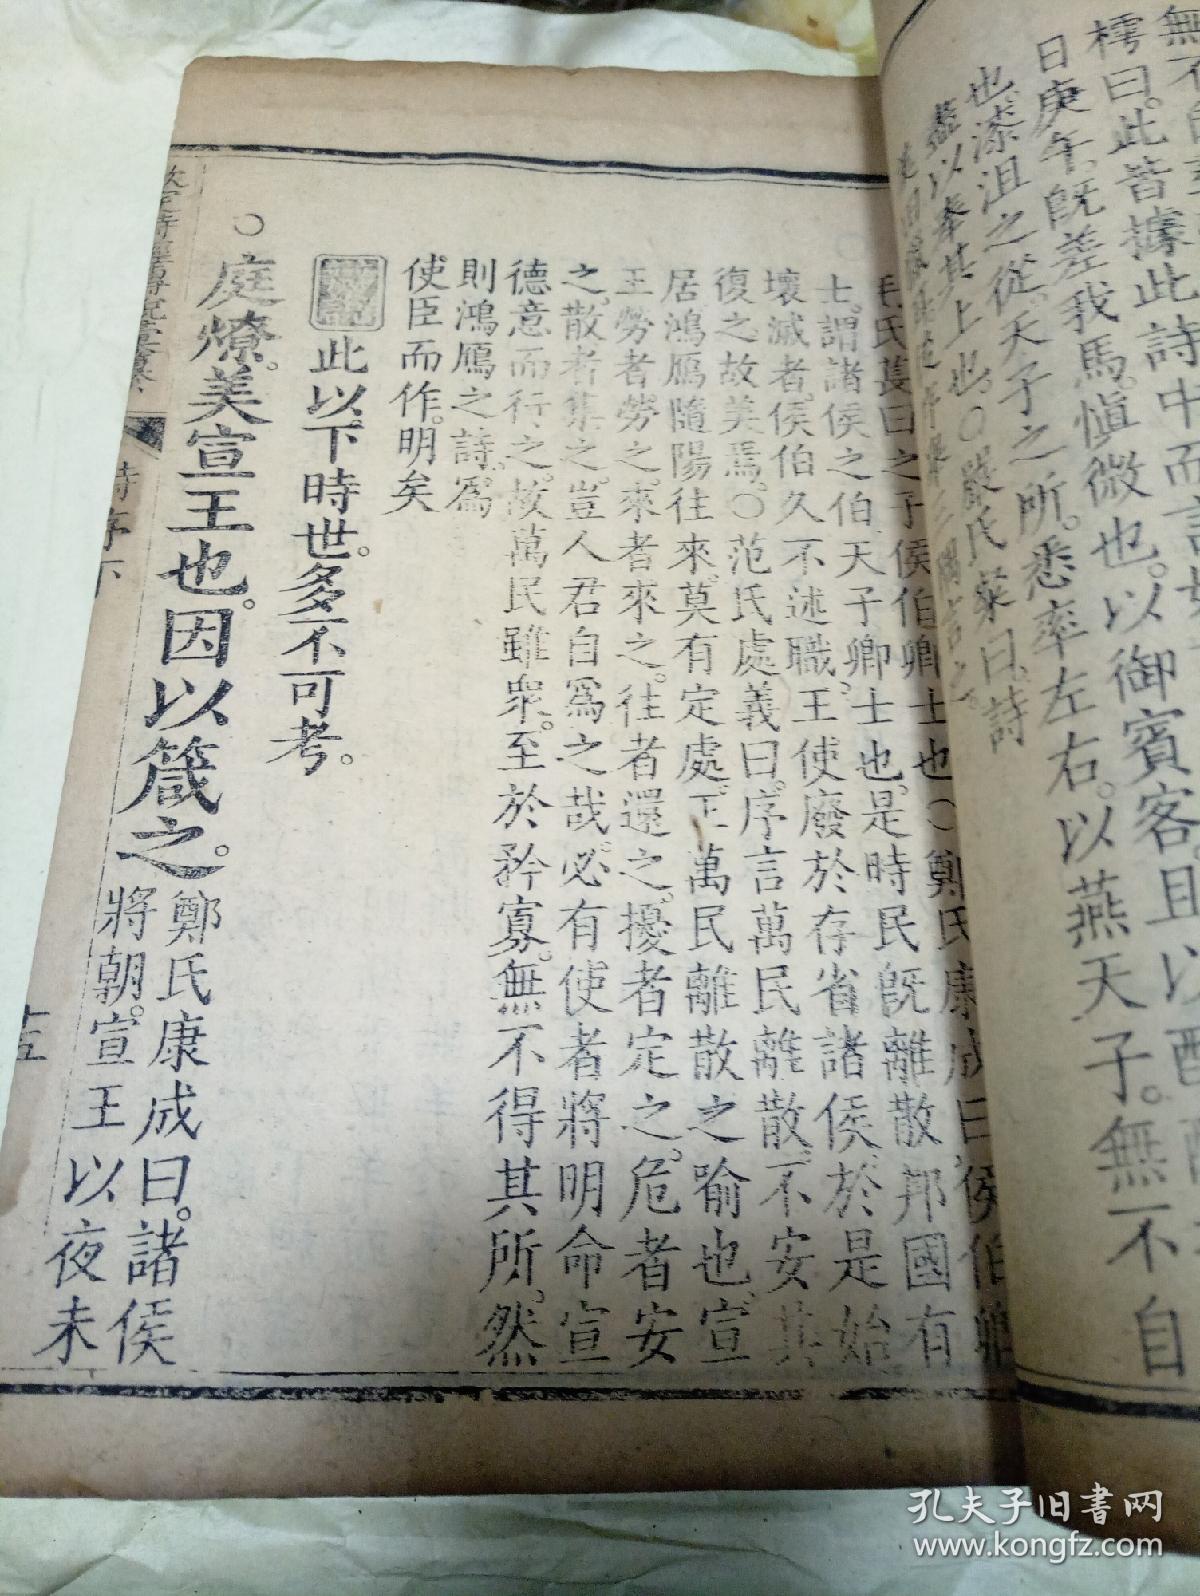 樗曰。此皆據此詩中而言
日庚午。旣差我馬。愼微也。以御賓客。且以
也。漆沮之從。天子之所。悉率左右。以燕天子。無不自
以奉其上也。〇嚴氏粲曰。詩
毛氏萇曰之子侯伯卿士也〇鄭氏康成曰侯伯卿
士。謂諸侯之伯天子卿士也。是時民旣離散邦國有
壞滅者。侯伯久不述職。王使廢於存省諸侯。於是始
復之。故美焉。〇范氏處義曰。序言萬民離散。不安其
居鴻鴈隨陽往來。莫有定處。正萬民離散之喻也。宣
王勞者勞之。來者來之。往者還之。擾者定之。危者安
之。散者集之。豈人君自爲之哉。必有使者將明命宣
德意而行之。故萬民雖衆。至於矜寡。無不得其所。然
則鴻鴈之詩。爲
使臣而作。明矣
此以下時世。多不可考。
〇庭燎。美宣王也。因以箴之。
鄭氏康成曰。諸侯
將朝。宣王以夜未
詩序下
十五
孔夫子旧書网
www.kongfz.com